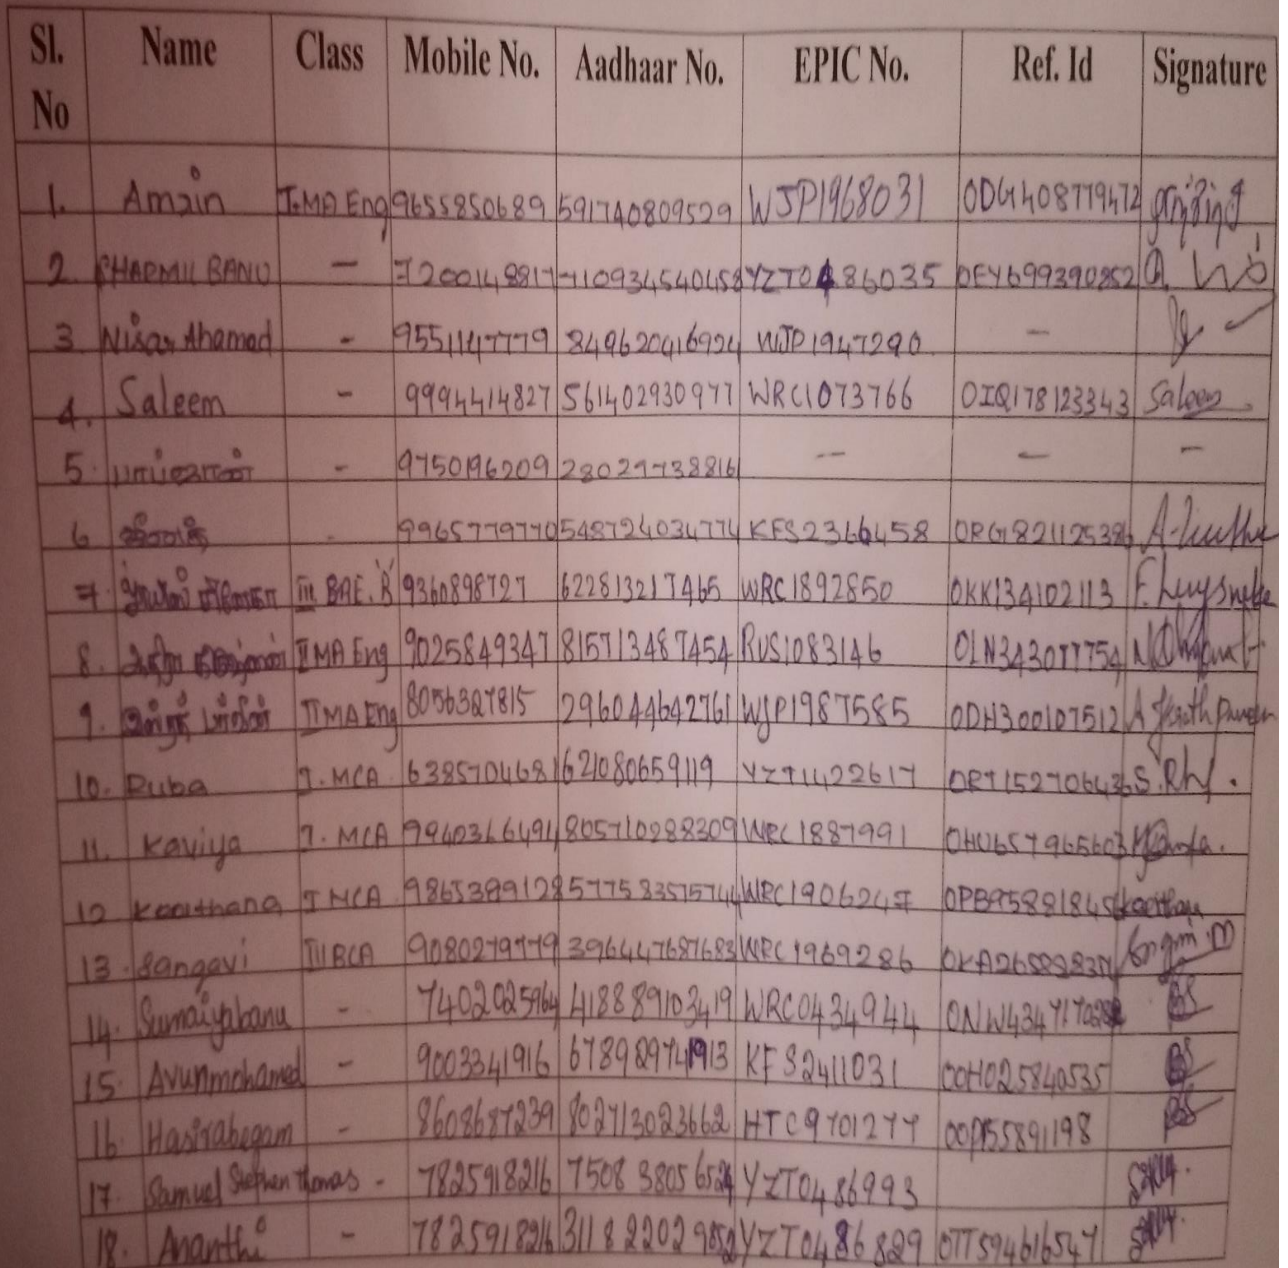 Sl. No Name Class Mobile No. Aadhaar No. EPIC No. Ref. Id Signature
1. Amzin I.MA Eng 9655850689 591740809529 WJP1968031 ODG1408779472
2. SHARMIL BANU - 7200148817 710934540458 YZT0486035 OEY699390852
3. Nisar Ahamad - 9551147779 849620416924 WJP1947290 -
4. Saleem - 9994414827 561402930977 WRC1073766 OIQ178123343 Saleem
5. - 9750196209 280297738816 - - -
6. - 9965779770 548724034774 KFS2366458
7. III BAE. 9360898727 622813217465 WRC1892850 OKK134102113
8. II MA Eng 9025849347 815713487454 RUS1083146 OLN343077754
9. II MA Eng 8056327815 296044642761 WJP1987585 ODH300107512
10. Ruba I. MCA 6385704681 621080659119 YZT1422617 ORT152706436
11. Kaviya I. MCA 9940366494 805710288309 WRC1887991 OHU657965603
12 Keerthana I MCA 9865389128 577583575744 WRC1906247
13. Sangavi III BCA 9080279779 396447687683 WRC1969286
14. Sumaiyabanu - 7402025964 418889103419 WRC0434944
15. Avunmohamed - 9003341916 678989741913 KFS2411031 OOH025840535
16. Hasirabegam - 8608687239 802713023662 HTC9701277
17. Samuel Stephen Thomas - 7825918216 7508 3805 6524 YZT0486993
18. Ananthi - 7825918216 3118 2202 9852 YZT0486829 OTT594616547